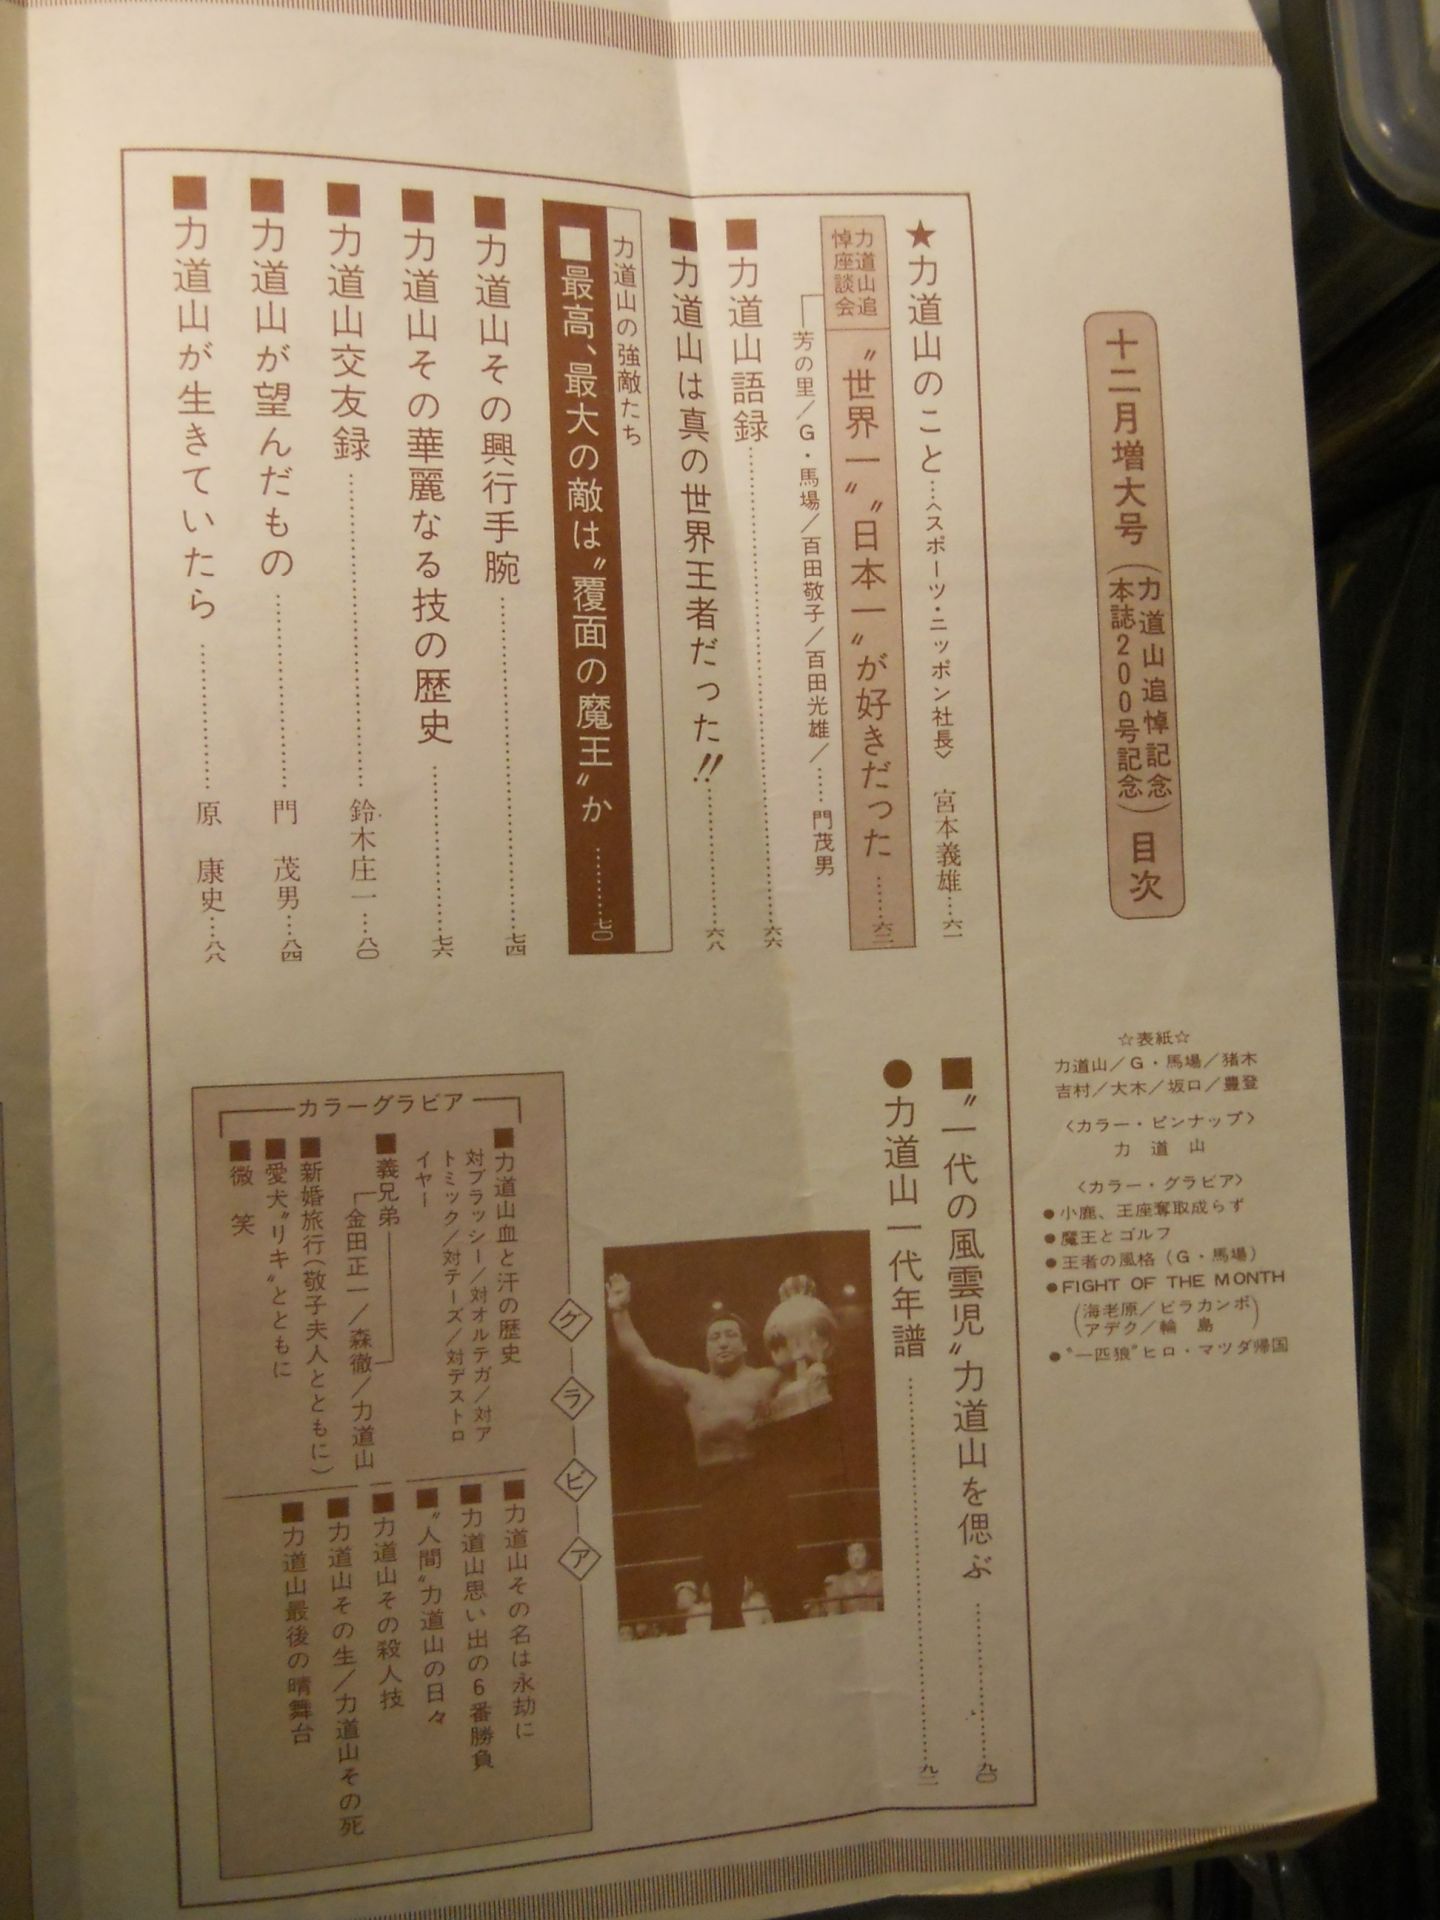 十二月増大号(力道山追悼記念 本誌200号記念)目次
☆表紙☆
力道山/G・馬場/猪木
吉村/大木/坂口/豊登
〈カラー・ピンナップ〉
力道山
〈カラー・グラビア〉
●小鹿、王座奪取成らず
●魔王とゴルフ
●王者の風格(G・馬場)
●FIGHT OF THE MONTH
(海老原/ピラカンポ
アデク/輪島)
●〝一匹狼〟ヒロ・マツダ帰国
★力道山のこと…〈スポーツ・ニッポン社長〉 宮本義雄…六一
力道山追悼座談会
〝世界一〟〝日本一〟が好きだった……六二
芳の里/G・馬場/百田敬子/百田光雄/……門茂男
■力道山語録……六六
■力道山は真の世界王者だった!!……六八
力道山の強敵たち
■最高、最大の敵は〝覆面の魔王〟か……七〇
■力道山その興行手腕……七四
■力道山その華麗なる技の歴史……七六
■力道山交友録……鈴木庄一…八〇
■力道山が望んだもの……門 茂男…八四
■力道山が生きていたら……原 康史…八八
■〝一代の風雲児〟力道山を偲ぶ……九〇
●力道山一代年譜……九二
グラビア
カラーグラビア
■力道山血と汗の歴史
対ブラッシー/対オルテガ/対ア
トミック/対テーズ/対デストロ
イヤー
■義兄弟
金田正一/森徹/力道山
■新婚旅行(敬子夫人とともに)
■愛犬〝リキ〟とともに
■微笑
■力道山その名は永劫に
■力道山思い出の6番勝負
■〝人間〟力道山の日々
■力道山その殺人技
■力道山その生/力道山その死
■力道山最後の晴舞台